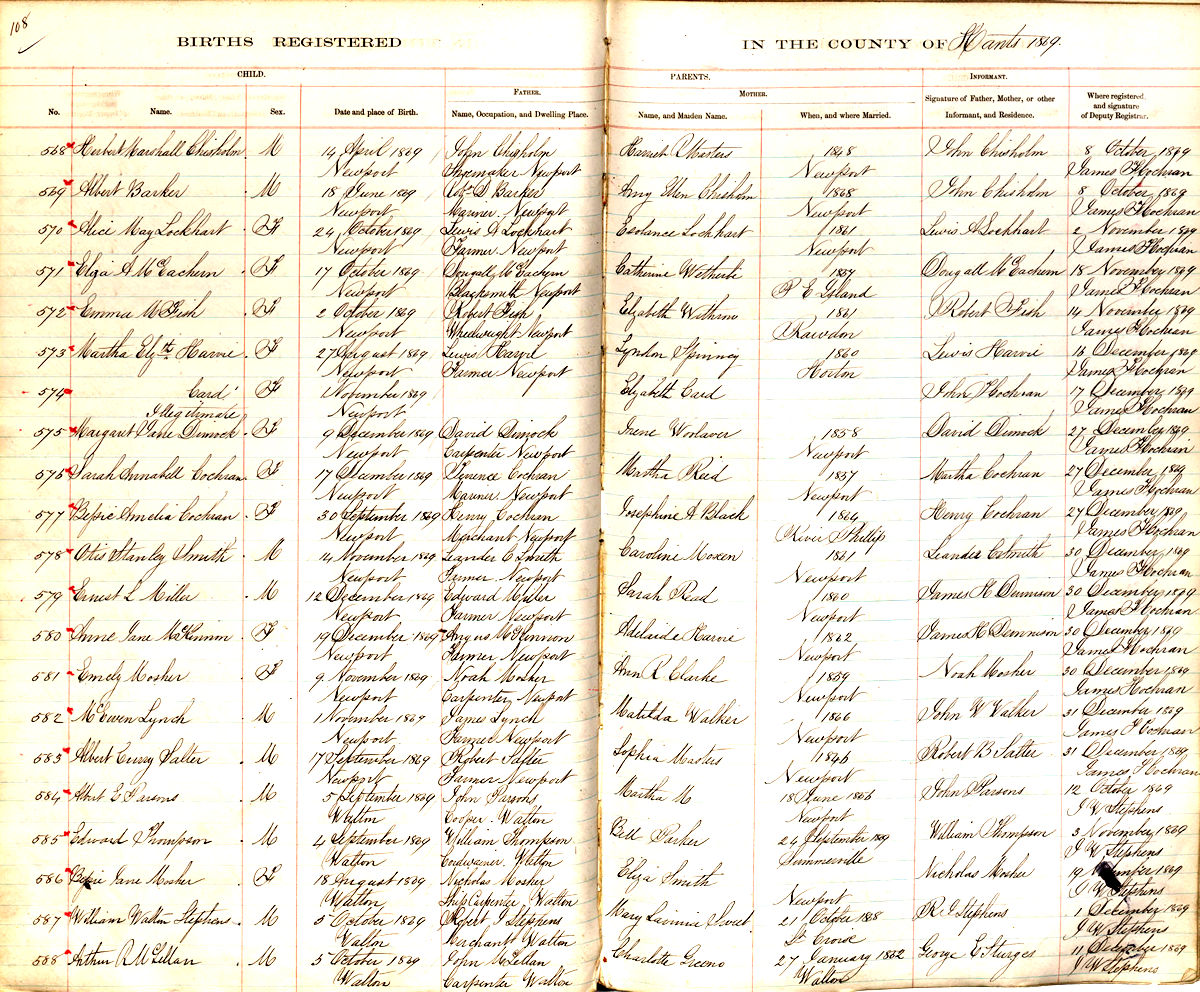 108
BIRTHS REGISTERED IN THE COUNTY OF Hants 1869.
CHILD. PARENTS. INFORMANT.
FATHER. MOTHER.
No. Name. Sex. Date and place of Birth. Name, Occupation, and Dwelling Place. Name, and Maiden Name. When, and where Married. Signature of Father, Mother, or other Informant, and Residence. Where registered, and signature of Deputy Registrar.
568 Herbert Marshall Chisholm M 14 April 1869 John Chisholm Harriet Masters 1848 John Chisholm 8 October 1869
Newport Shoemaker Newport Newport James F Cochran
569 Albert Barker M 18 June 1869 Wm D Barker Amy Ellen Chisholm 1868 John Chisholm 8 October 1869
Newport Mariner Newport Newport James F Cochran
570 Alice May Lockhart F 24 October 1869 Lewis A Lockhart Lockhart 1861 Lewis A Lockhart 2 November 1869
Newport Farmer Newport Newport James F Cochran
571 Eliza A McEachern F 17 October 1869 Dougall McEachern Catherine 1857 Dougall McEachern 18 November 1869
Newport Blacksmith Newport P E Island James F Cochran
572 Emma M Fish F 2 October 1869 Robert Fish Elizabeth Withrow 1861 Robert Fish 14 November 1869
Newport Wheelwright Newport Rawdon James F Cochran
573 Martha Elizth Harvie F 27 August 1869 Lewis Harvie Lyndon Spinney 1860 Lewis Harvie 16 December 1869
Newport Farmer Newport Horton James F Cochran
574 Card F 1 November 1869 Elizabeth Card John Cochran 17 December 1869
Illegitimate Newport James F Cochran
575 Margaret Jane Dimock F 9 December 1869 David Dimock Irene Woolaver 1858 David Dimock 27 December 1869
Newport Carpenter Newport Newport James F Cochran
576 Sarah Annabell Cochran F 17 December 1869 Cochran Martha Reid 1857 Martha Cochran 27 December 1869
Newport Mariner Newport Newport James F Cochran
577 Bessie Amelia Cochran F 30 September 1869 Henry Cochran Josephine A Black 1864 Henry Cochran 27 December 1869
Newport Merchant Newport River Phillip James F Cochran
578 Otis Stanley Smith M 14 November 1869 Leander C Smith Caroline Moxen 1861 Leander C Smith 30 December 1869
Newport Farmer Newport Newport James F Cochran
579 Ernest L Miller M 12 December 1869 Edward Miller Sarah Read 1860 James H Dennison 30 December 1869
Newport Farmer Newport Newport James F Cochran
580 Anne Jane McKinnon F 19 December 1869 Angus McKinnon Adelaide Harvie 1862 James H Dennison 30 December 1869
Newport Farmer Newport Newport James F Cochran
581 Emely Mosher F 9 November 1869 Noah Mosher Ann R Clarke 1859 Noah Mosher 30 December 1869
Newport Carpenter Newport Newport James F Cochran
582 McEwen Lynch M 1 November 1869 James Lynch Matilda Walker 1866 John W Walker 31 December 1869
Newport Farmer Newport Newport James F Cochran
583 Albert Curry Salter M 17 September 1869 Robert Salter Sophia Masters 1846 Robert B Salter 31 December 1869
Newport Farmer Newport Newport James F Cochran
584 Albert E Parsons M 5 September 1869 John Parsons Martha M 18 June 1866 John Parsons 12 October 1869
Walton Cooper Walton Newport J W Stephens
585 Edward Thompson M 4 September 1869 William Thompson Bell Parker 24 September 1869 William Thompson 3 November 1869
Walton Cordwainer Walton Summerville J W Stephens
586 Bessie Jane Mosher F 18 August 1869 Nicholas Mosher Eliza Smith Nicholas Mosher 19 November 1869
Walton Ship Carpenter Walton Newport J W Stephens
587 William Walton Stephens M 5 October 1869 Robert J Stephens Mary Lavinia Sweet 21 October 1868 R G Stephens 1 December 1869
Walton Merchant Walton St Croix J W Stephens
588 Arthur R McLellan M 5 October 1869 John McLellan Charlotte Greeno 27 January 1852 George E Sturges 11 December 1869
Walton Carpenter Walton Walton J W Stephens